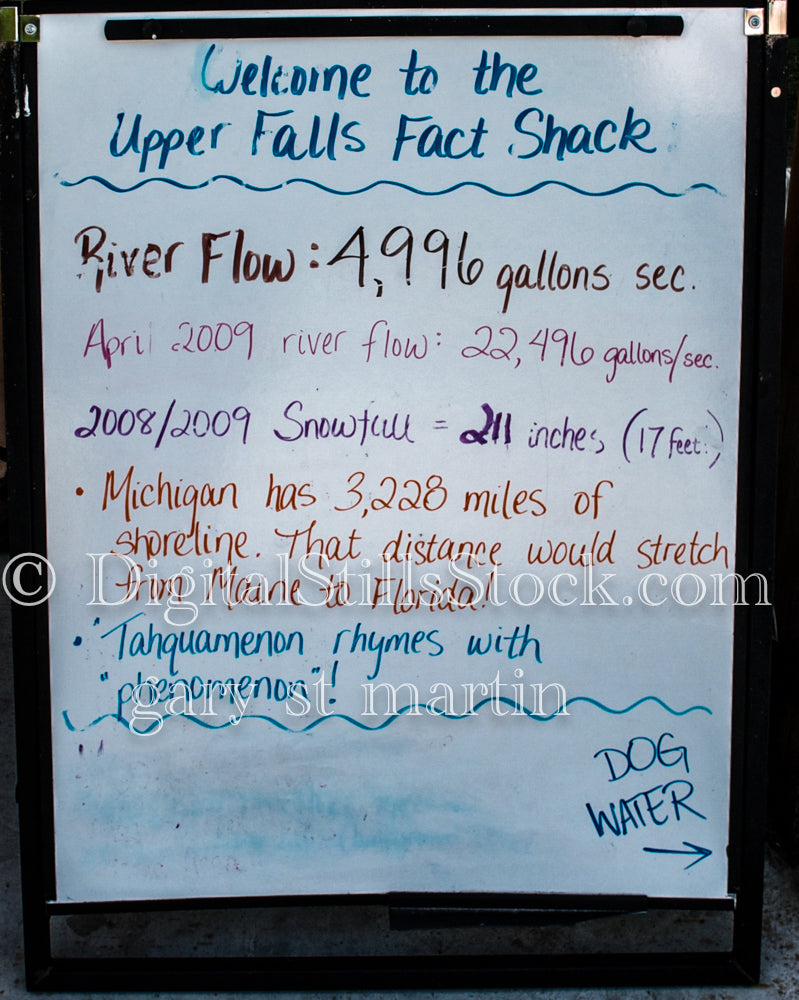 Welcome to the
Upper Falls Fact Shack
River Flow: 4,996 gallons sec.
April 2009 river flow: 22,496 gallons/sec.
2008/2009 Snowfall = 211 inches (17 feet!)
• Michigan has 3,228 miles of
shoreline. That distance would stretch
from Maine to Florida!
© DigitalStillsStock.com
• "Tahquamenon rhymes with
"phenomenon"!
gary st martin
DOG
WATER
→